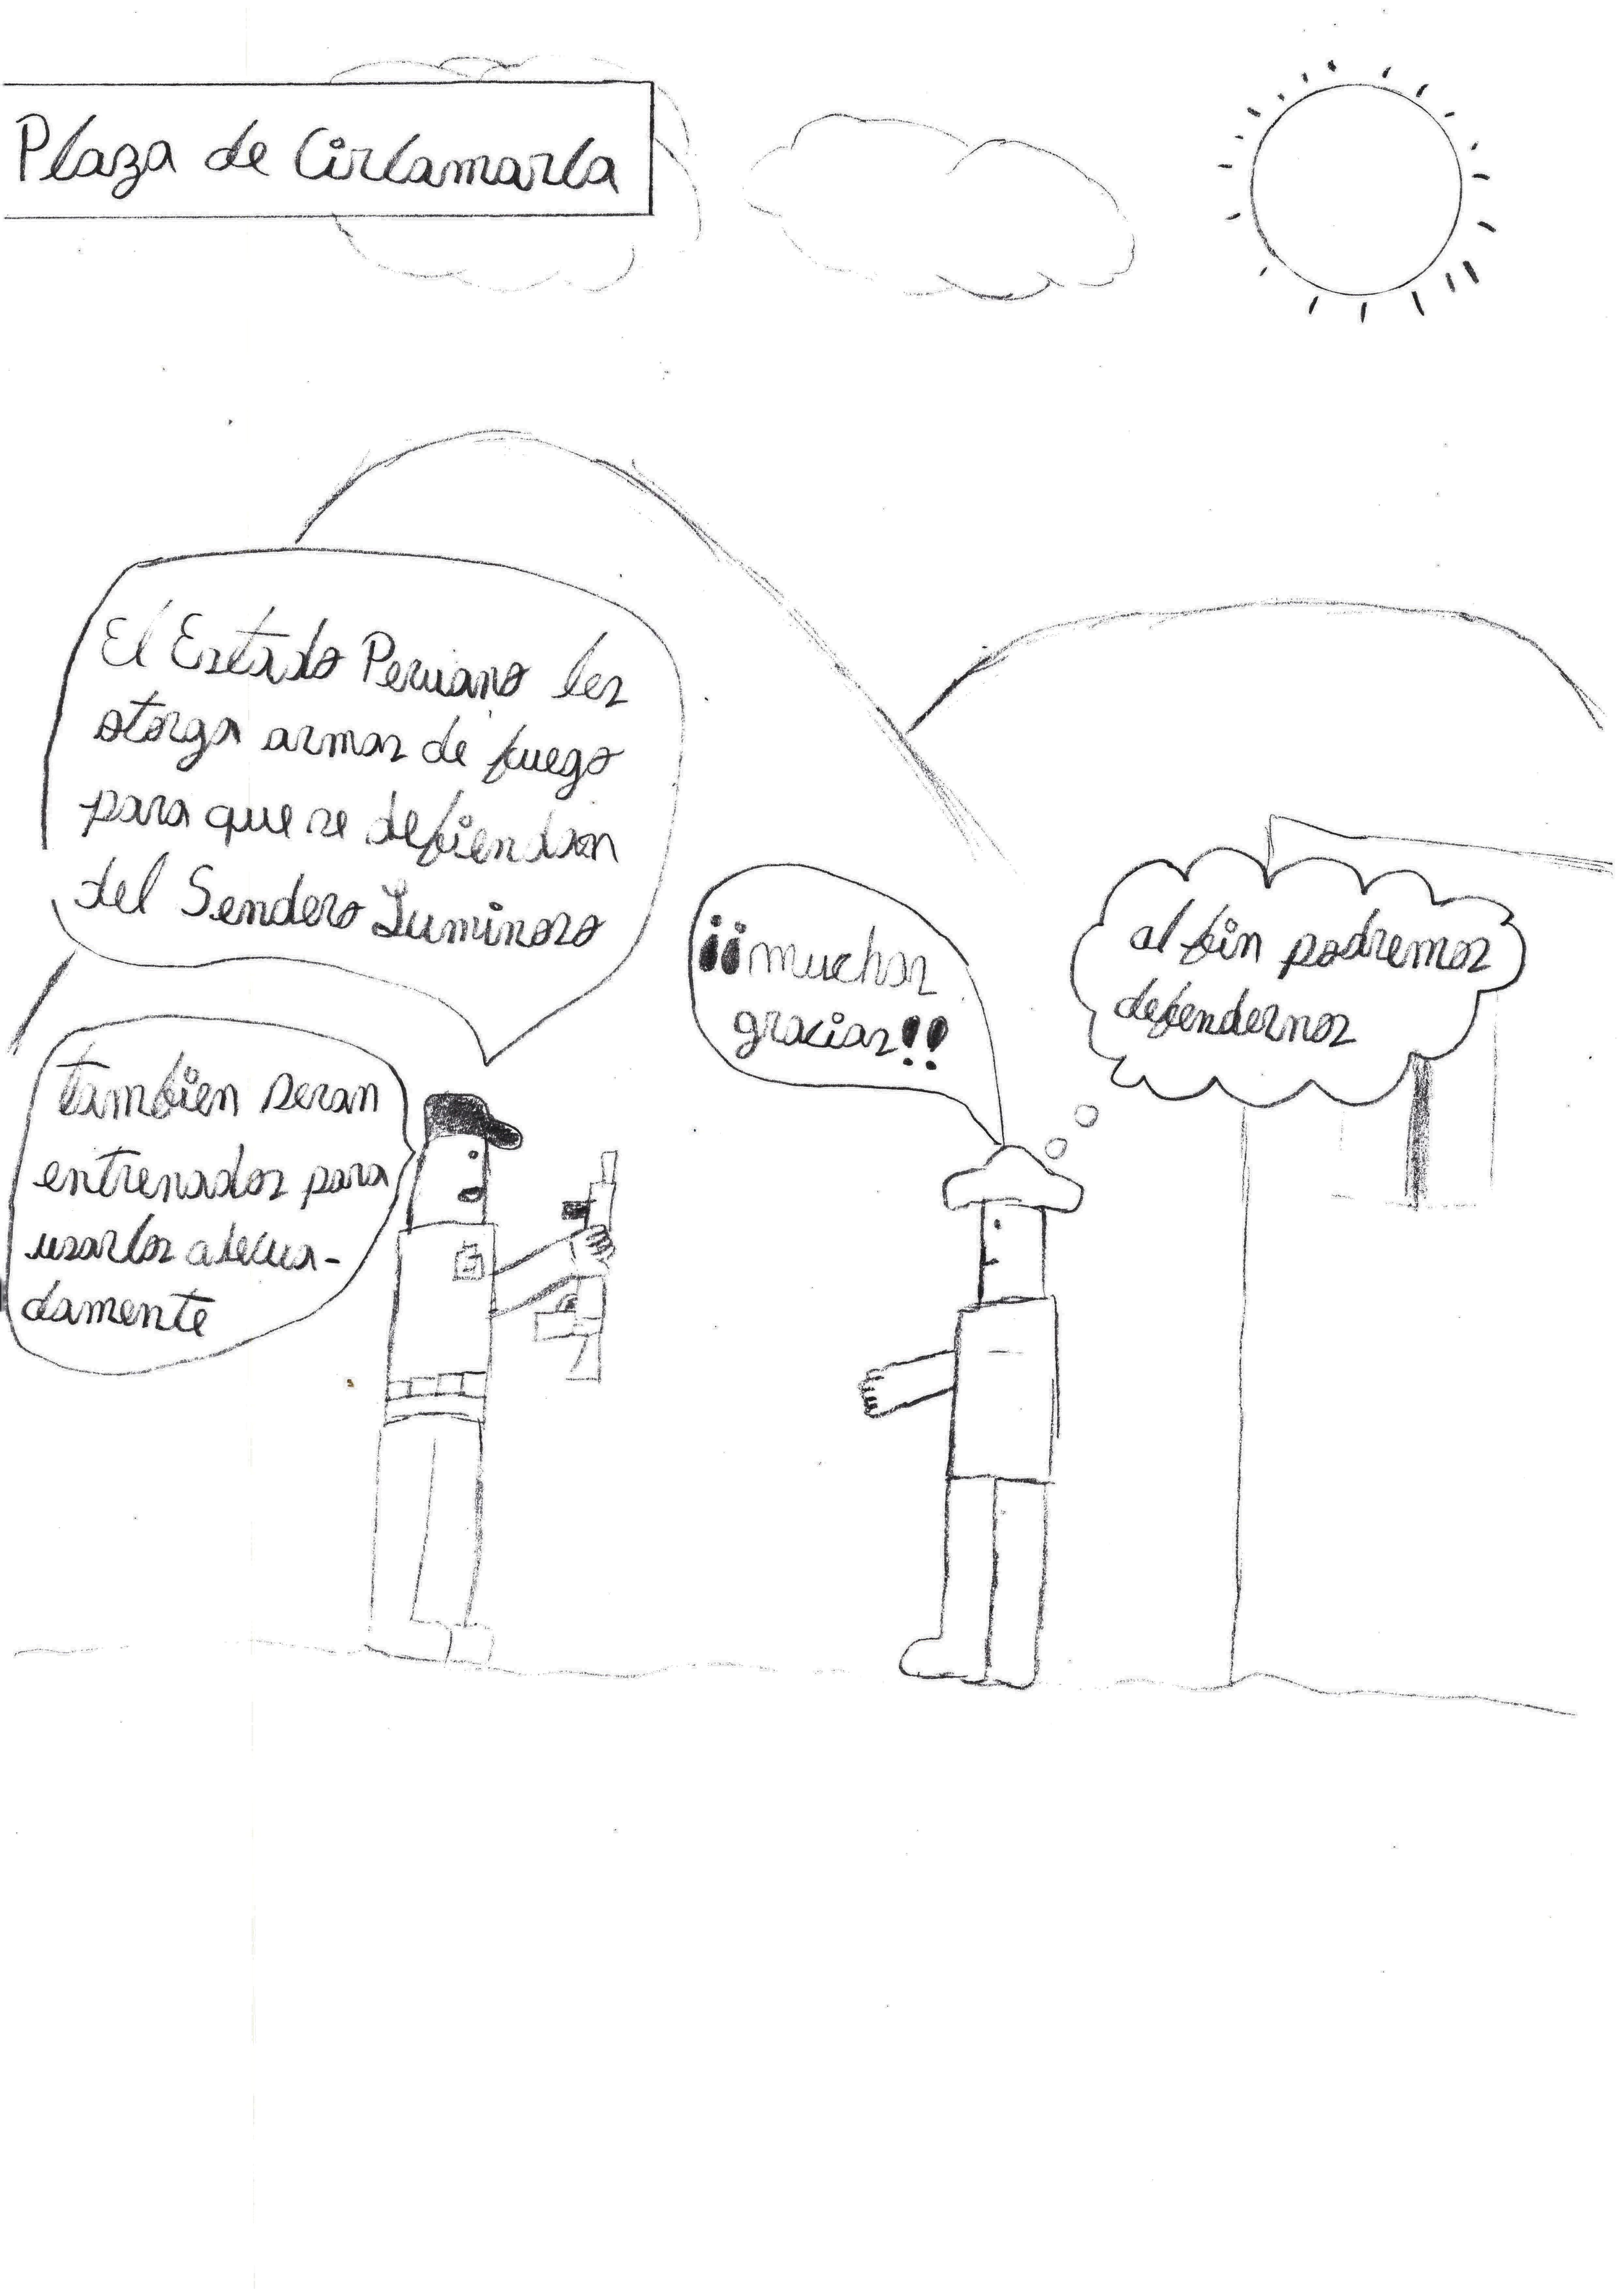 Plaza de Circamarca
El Estado Peruano les
otorga armas de fuego
para que se defiendan
del Sendero Luminoso
tambien seran
entrenados para
usarlos adecua-
damente
¡¡muchas
gracias!!
al fin podremos
defendernos